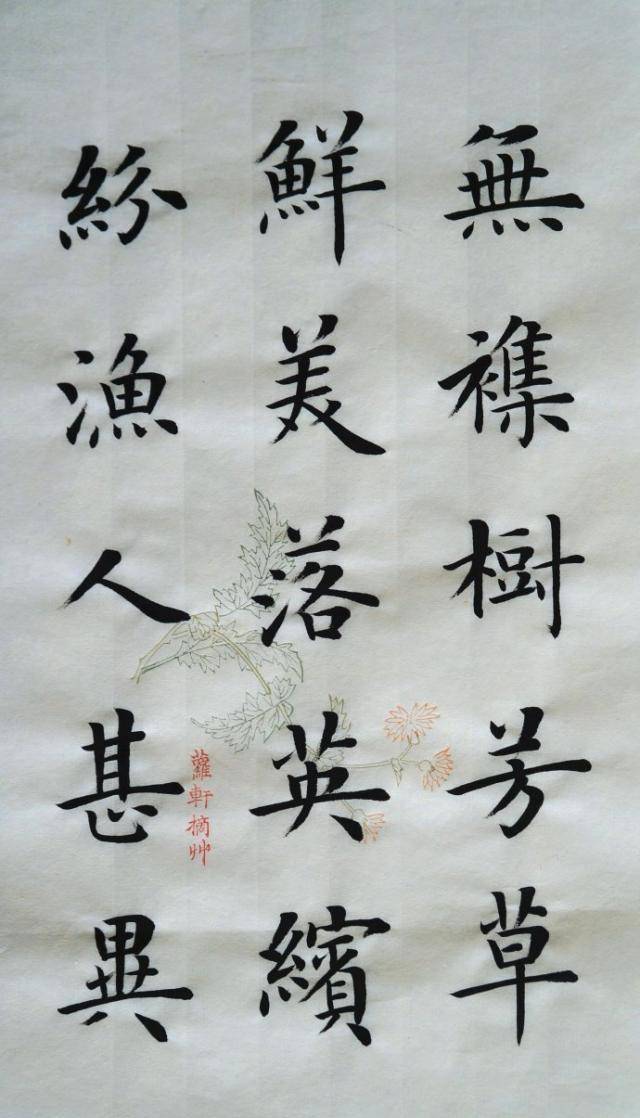 無襍樹芳草
鮮美落英繽
紛漁人甚異
蘿軒摘艸